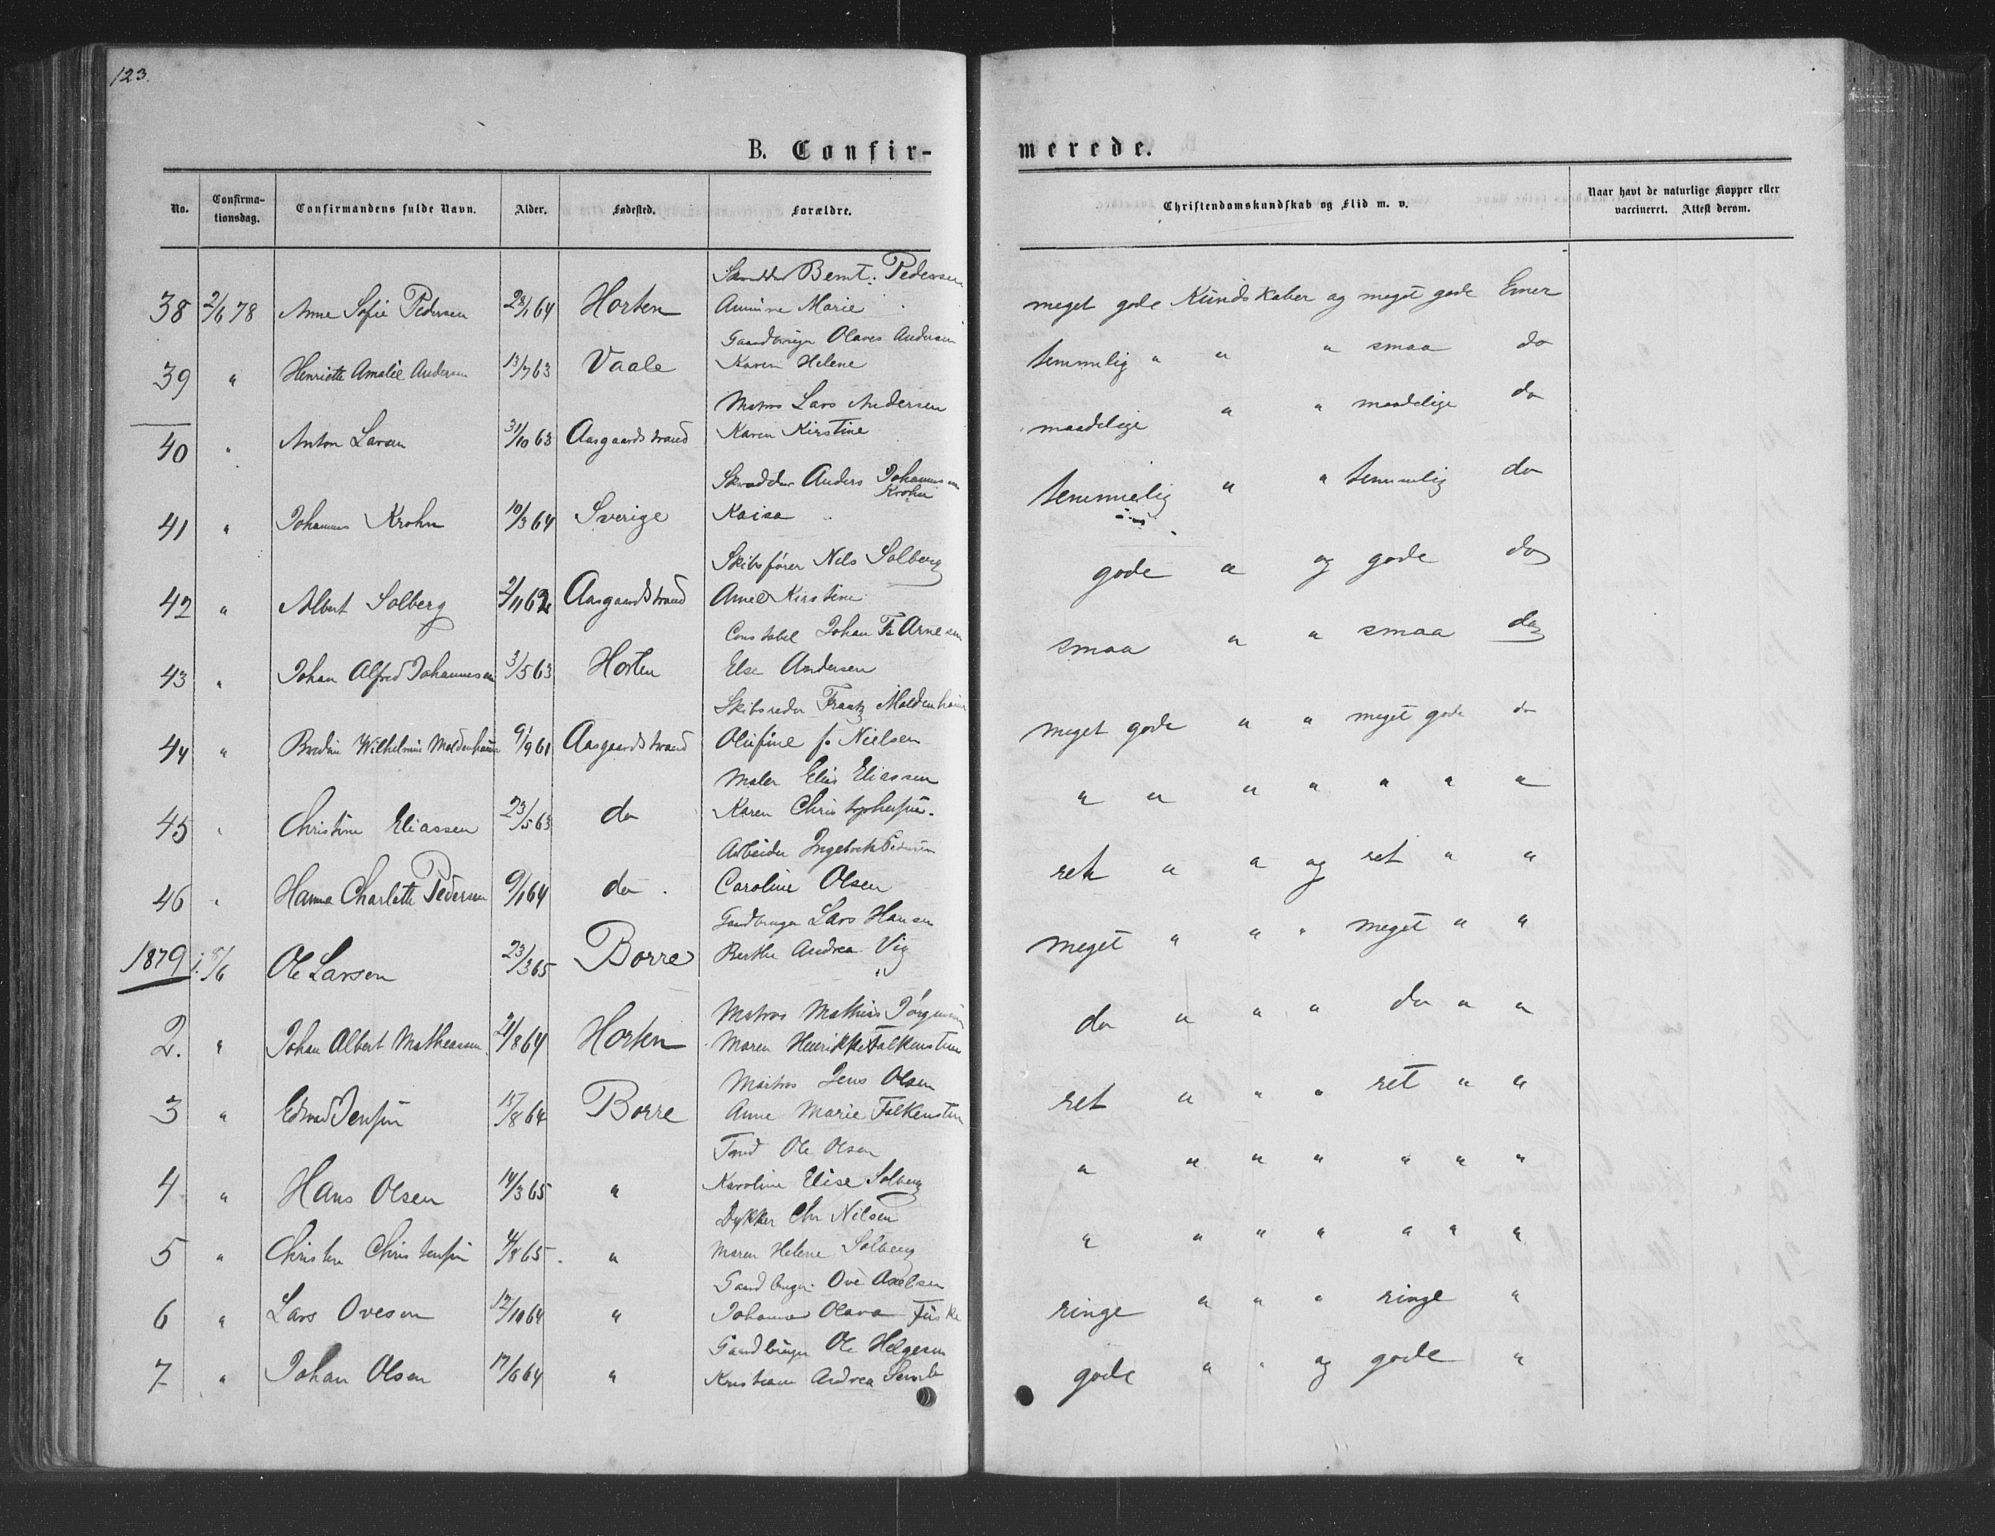 123.
B. Confir-
merede.
No. Confirma-tionsdag. Confirmandens fulde Navn. Alder. Fødested. Forældre. Christendomskundskab og Flid m. v. Naar havt de naturlige Kopper eller vaccineret. Attest derom.
Skrædder Bernt. Pedersen
38 2/6 78 Anne Sofie Pedersen 28/1 64 Horten Annine Marie meget gode Kundskaber og meget gode Evner
Gaardbruger Olaves Andersen
39 " Henriette Amalie Andersen 13/7 63 Vaale Karen Helene temmelig " " " smaa do
Matros Lars Andersen
40 " Anton Larsen 31/10 63 Aasgaardstrand Karen Kirstine maadelige " " maadelige do
Skrædder Anders Johannesen Krohn
41 " Johannes Krohn 10/3 64 Sverige Kaisa temmelig " " temmelig do
Skibsfører Nils Solberg
42 " Albert Solberg 2/11 62 Aasgaardstrand Anne Kirstine gode " og gode do
Constabel Johan Fr Arnesen
43 " Johan Alfred Johannesen 3/5 63 Horten Else Andersen smaa " " smaa do
Skibsreder Frantz Moldenhauer
44 " Wilhelmine Moldenhauer 9/9 61 Aasgaardstrand Olufine f. Nielsen meget gode " " meget gode do
Maler Elias Eliassen
45 " Christine Eliassen 23/5 63 do Karen Christophersen. " " " " " " "
Arbeider Pedersen
46 " Hanna Charlotte Pedersen 9/1 64 do Caroline Olsen ret " " og ret " "
Gaardbruger Lars Hansen
1879 1. 8/6 Ole Larsen 23/3 65 Borre Berthe Andrea Vig meget " " " meget " "
Matros Mathias Jørgensen
2. " Johan Albert Matheassen 21/8 64 Horten Maren Henrikke Falkensten do " " " do " "
Matros Jens Olsen
3 " Edvard Jensen 17/8 64 Borre Anne Marie Falkensten ret " " " ret " "
Ole Olsen
4 " Hans Olsen 14/3 65 " Karoline Elise Solberg " " " " " " "
Dykker Chr Nilsen
5 " Christen Christensen 4/8 65 " Maren Helene Solberg " " " " " " "
Gaardbruger Ove Axelsen
6 " Lars Ovesen 12/10 64 " Johanne Olava ringe " " " ringe "
Gaardbruger Ole Helgesen
7 " Johan Olsen 17/6 64 " Kristiane Andrea Semb gode " " og gode "